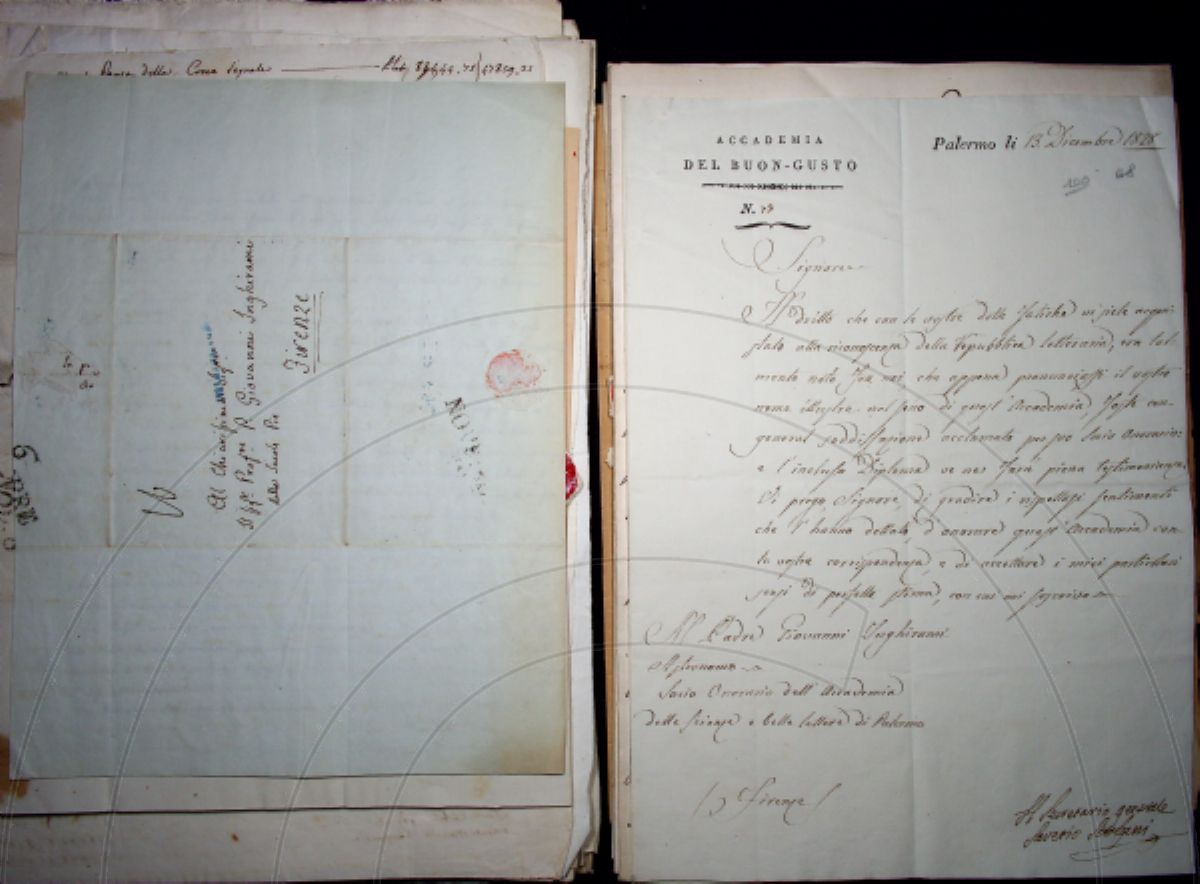 della Cora Segreta
Al Chiarissimo Sig.
P. Giovanni Inghirami
delle Scuole Pie
Firenze
NOV
ACCADEMIA
DEL BUON-GUSTO
Palermo li 13. Dicembre 1828
N.
Signore
Il dritto che con le vostre dotte fatiche vi siete acqui-
stato alla riconoscenza della repubblica letteraria, era tal-
mente noto fra noi che appena pronunciossi il vostro
nome illustre nel seno di quest'Accademia, foste con
general soddisfazione acclamato per suo Socio Onorario:
e l'incluso Diploma ve ne farà piena testimonianza.
Vi prego, Signore, di gradire i rispettosi sentimenti
che l'hanno dettato, d'onorare quest'Accademia con
la vostra corrispondenza, e di accettare i miei particolari
sensi di perfetta stima, con cui mi soscrivo
Al Padre Giovanni Inghirami
Astronomo
Socio Onorario dell'Accademia
delle Scienze e belle lettere di Palermo
Firenze
Il Secretario generale
Saverio